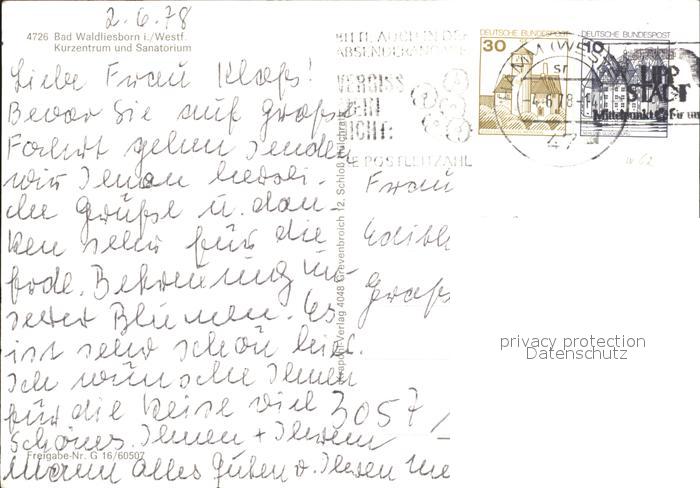 2.6.78
4726 Bad Waldliesborn i./Westf.
Kurzentrum und Sanatorium
Liebe Frau Klaps!
Bevor Sie auf große
Fahrt gehen senden
wir Ihnen herzli-
che Grüße u. dan-
ken sehr für die
Betreuung un-
serer Blumen. Es
ist sehr schön hier.
Ich wünsche Ihnen
für die Reise viel
schönes. Ihnen + Ihrem
Mann alles Guten v. Ihren
Freigabe-Nr. G 16/60507
Krapohl-Verlag 4048 Grevenbroich 12, Schloß Hülchrath
BITTE AUCH IN DER
ABSENDERANGABE
VERGISS
MEIN
NICHT:
DIE POSTLEITZAHL
DEUTSCHE BUNDESPOST
30
DEUTSCHE BUNDESPOST
10
HAMM (WESTF)
-4.6.78-
47
LIPP
STADT
Mittelpunkt
Frau
Edith
3057
privacy protection
Datenschutz